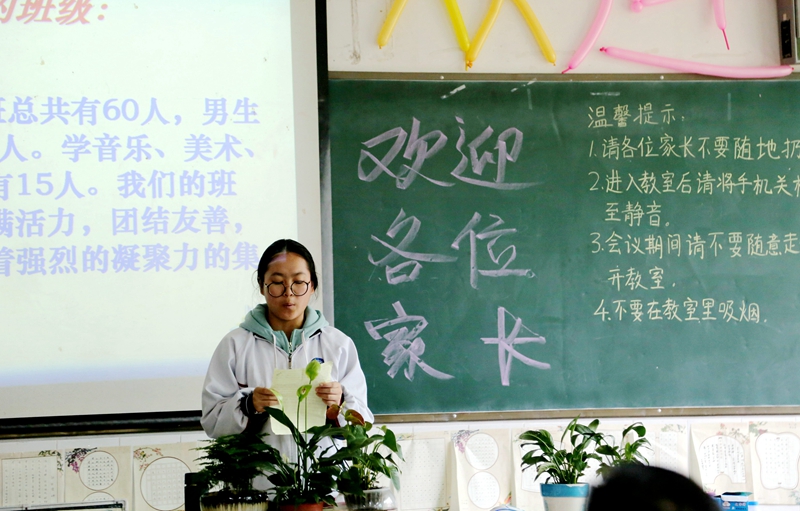 的班级:
班总共有60人，男生
人。学音乐、美术、
有15人。我们的班
满活力，团结友善，
着强烈的凝聚力的集
欢迎
各位
家长
温馨提示:
1.请各位家长不要随地扔
2.进入教室后请将手机关机
至静音.
3.会议期间请不要随意走
开教室.
4.不要在教室里吸烟.